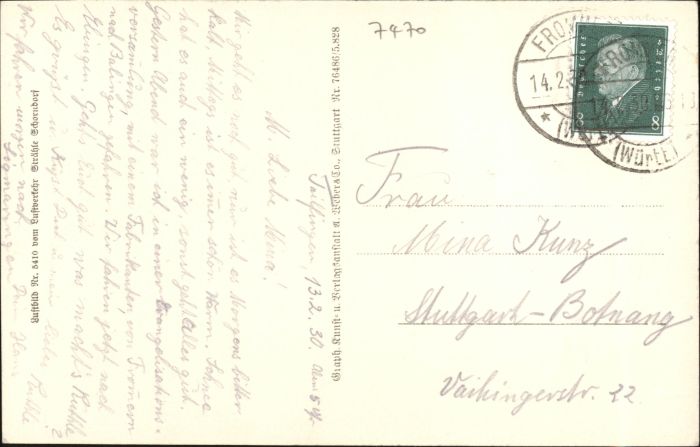 7470
Tailfingen, 13.2.30.
M. Liebe Mina!
Mir geht es noch gut, nur ist es Morgens bitter
kalt, Mittag ist es immer schön Warm, Schnee
hat es auch ein wenig, sonst geht Alles gut.
Gestern Abend war ich in einer Evangelisations-
versammlung, mit einem Fabrikanten, von Fromern
nach Balingen gefahren. Wir fahren jetzt nach
Ebingen. Geht's Euch gut was macht's Ruthle?
Es grüsst u. Küsst Dich u. mein liebes Ruthle
Wir fahren morgen nach
Sigmaringen Dein
Luftbild Nr. 5410 vom Luftverkehr Strähle Schorndorf
Graph. Kunst- u. Verlagsanstalt A. Weber & Co., Stuttgart Nr. 76486/5.828
FROMM
14.2.30
(WÜRTT.)
Deutsches Reich
8 8
Frau
Mina Kunz
Stuttgart-Botnang
Vaihingerstr. 22.